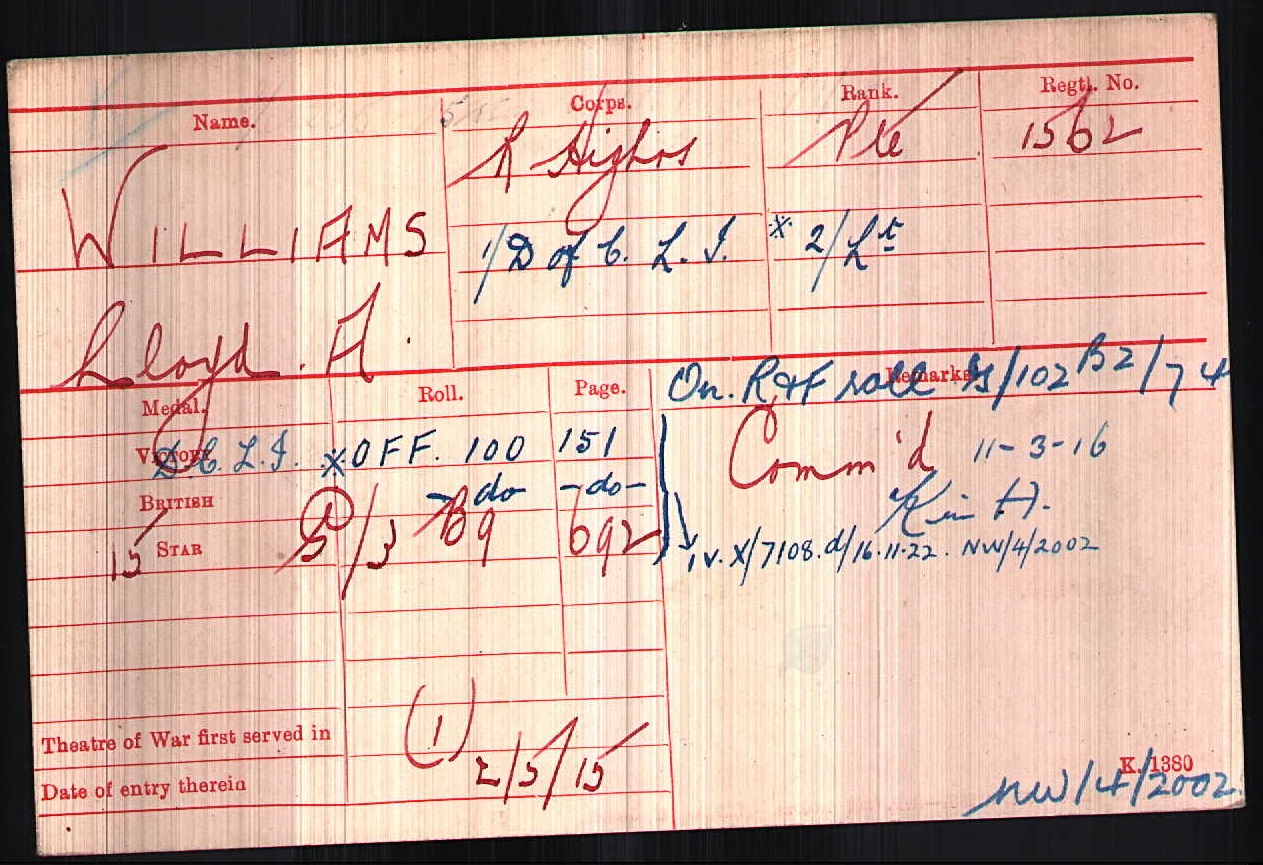 Name. Corps. Rank. Regtl. No.
WILLIAMS R Highrs Pte 1562
1/D of C. L. I. * 2/Lt
Lloyd. A.
Medal. Roll. Page. Remarks
On. R&F roll G/102 B2/74
VICTORY D.C.L.I. *OFF. 100 151 Comm'd 11-3-16
BRITISH -do- -do- K in A.
15 STAR 5/3 B9 692
iv. X/7108. d/16.11.22. NW/4/2002
Theatre of War first served in (1)
Date of entry therein 2/5/15
K. 1380
NW/4/2002.